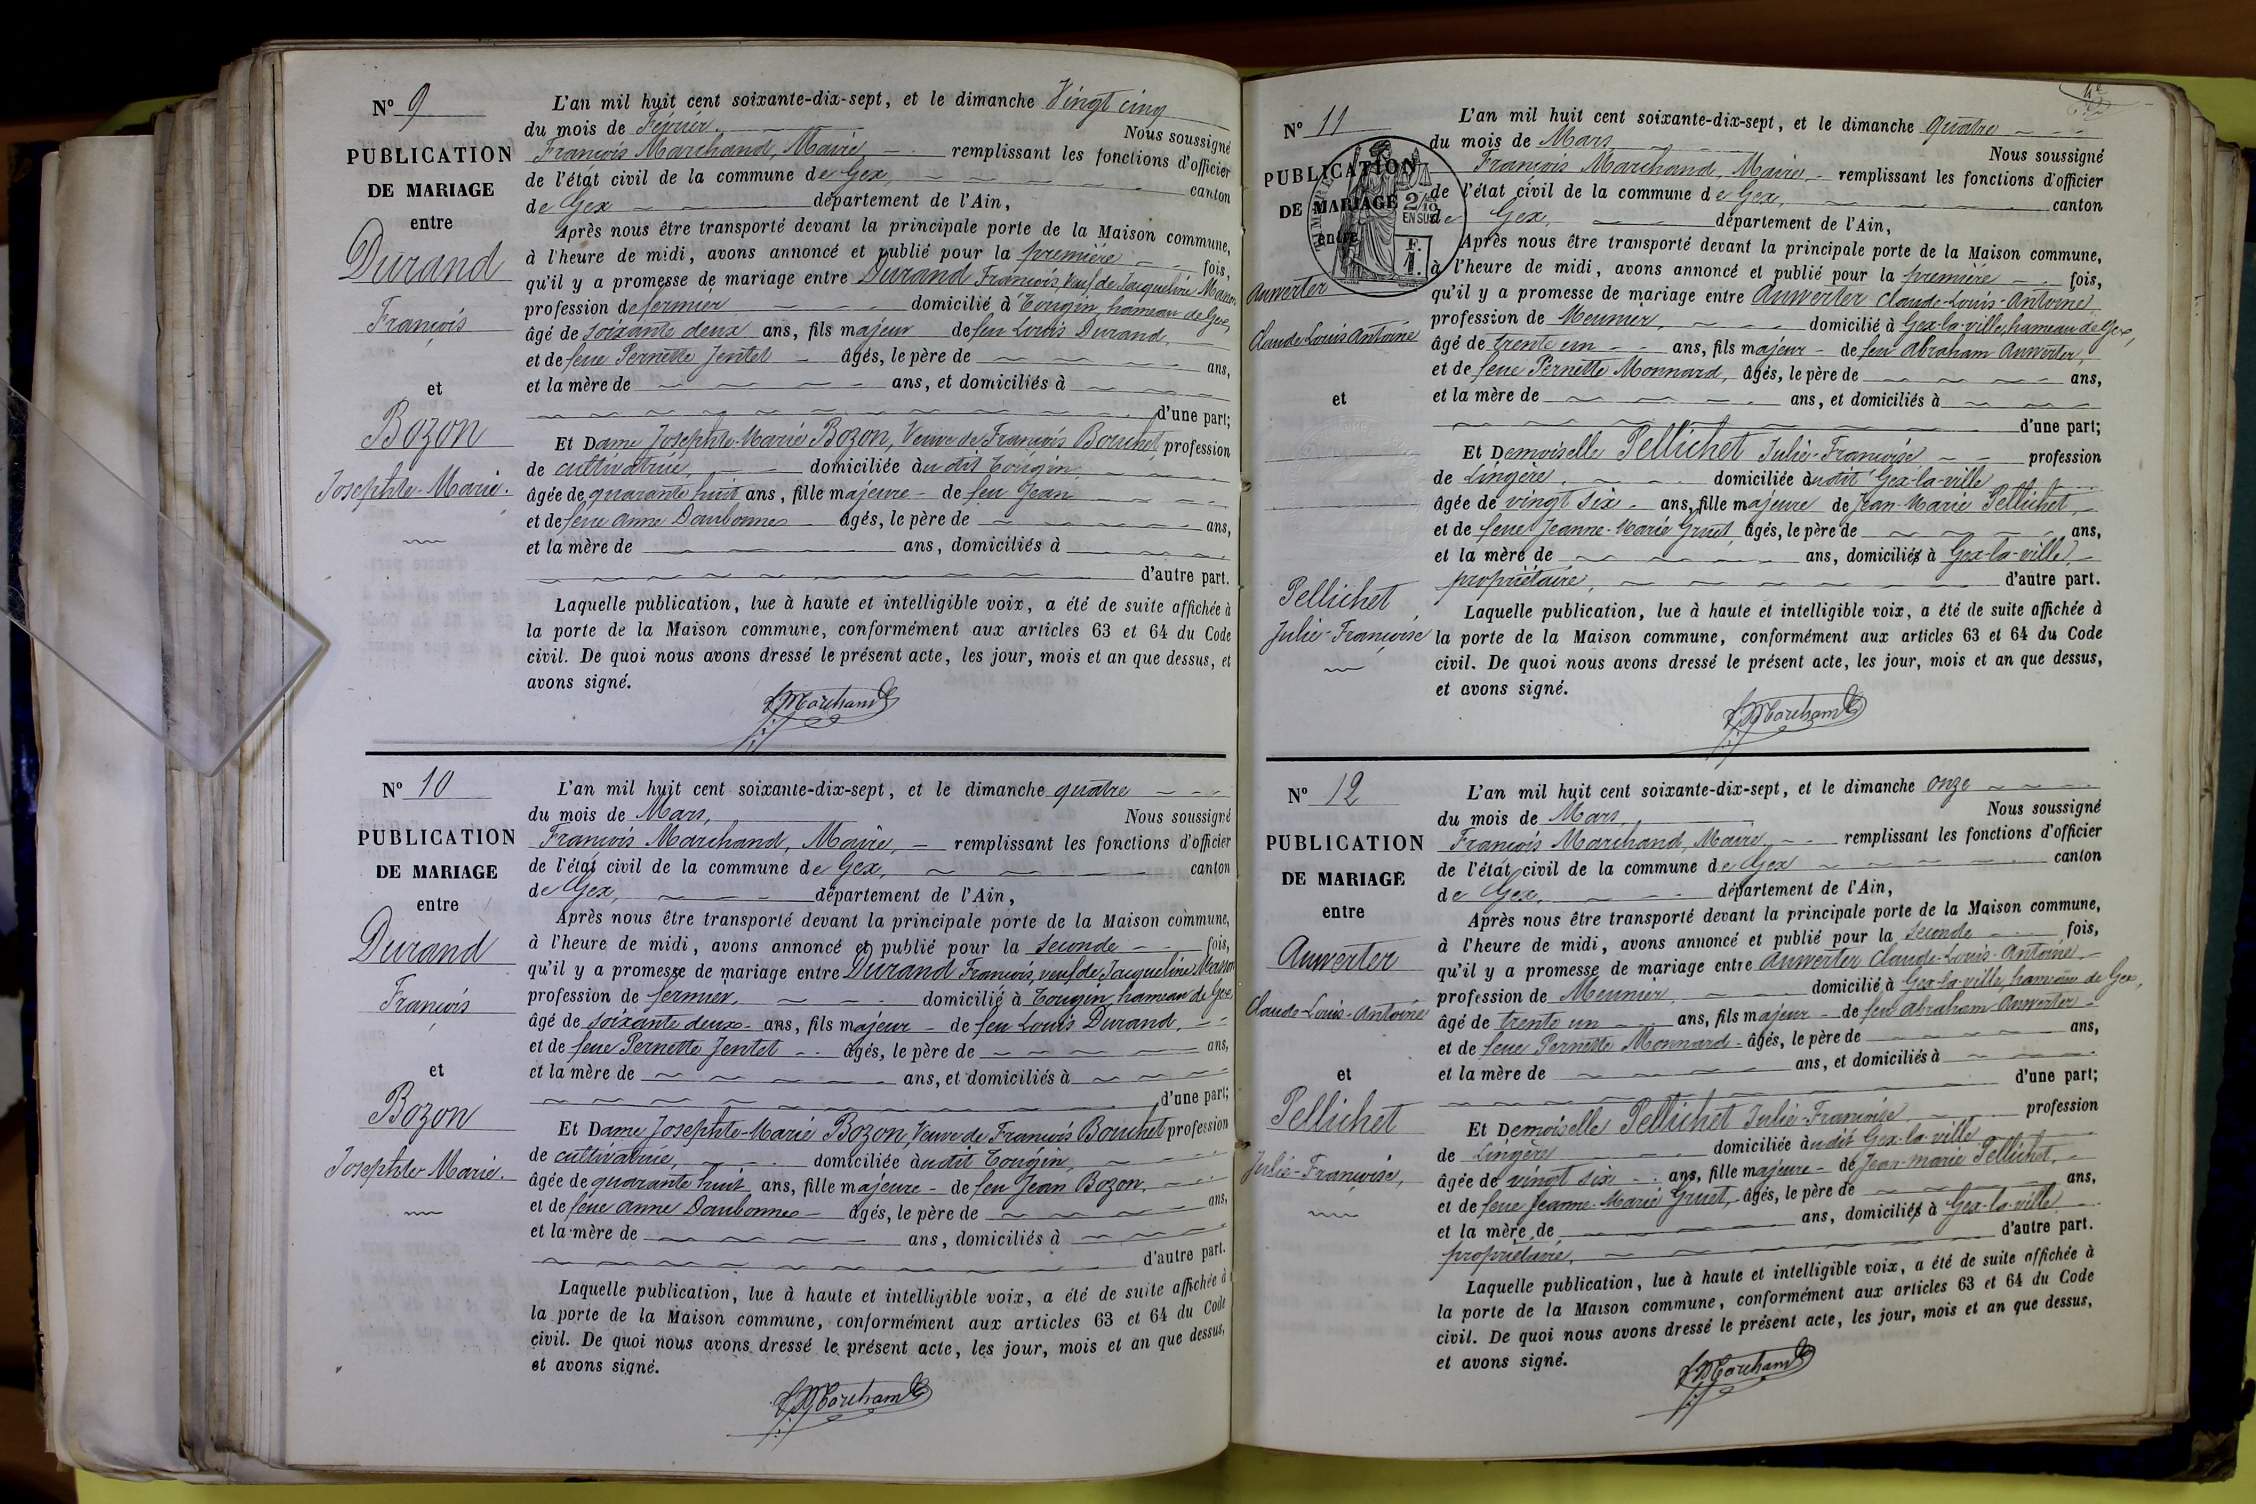 N° 9
PUBLICATION
DE MARIAGE
entre
Durand
François
et
Bozon
Josephte-Marie.
L'an mil huit cent soixante-dix-sept, et le dimanche Vingt cinq
du mois de Février. Nous soussigné
François Marchand, Maire remplissant les fonctions d'officier
de l'état civil de la commune de Gex, canton
de Gex département de l'Ain,
Après nous être transporté devant la principale porte de la Maison commune,
à l'heure de midi, avons annoncé et publié pour la première fois,
qu'il y a promesse de mariage entre Durand François, veuf de Jacqueline
profession de fermier domicilié à Tougin, hameau de Gex,
âgé de soixante deux ans, fils majeur de feu Louis Durand,
et de feue Pernette Jentet âgés, le père de ans,
et la mère de ans, et domiciliés à
d'une part;
Et Dame Josephte-Marie Bozon, Veuve de François Bouchet profession
de cultivatrice, domiciliée àudit Tougin,
âgée de quarante huit ans, fille majeure de feu Jean
et de feue Anne Daubonnes âgés, le père de ans,
et la mère de ans, domiciliés à
d'autre part.
Laquelle publication, lue à haute et intelligible voix, a été de suite affichée à
la porte de la Maison commune, conformément aux articles 63 et 64 du Code
civil. De quoi nous avons dressé le présent acte, les jour, mois et an que dessus, et
avons signé.
Marchand
N° 10
PUBLICATION
DE MARIAGE
entre
Durand
François
et
Bozon
Josephte-Marie.
L'an mil huit cent soixante-dix-sept, et le dimanche quatre
du mois de Mars, Nous soussigné
François Marchand, Maire, remplissant les fonctions d'officier
de l'état civil de la commune de Gex, canton
de Gex, département de l'Ain,
Après nous être transporté devant la principale porte de la Maison commune,
à l'heure de midi, avons annoncé et publié pour la seconde fois,
qu'il y a promesse de mariage entre Durand François, veuf de Jacqueline
profession de fermier, domicilié à Tougin, hameau de Gex
âgé de soixante deux ans, fils majeur de feu Louis Durand,
et de feue Pernette Jentet âgés, le père de ans,
et la mère de ans, et domiciliés à
d'une part;
Et Dame Josephte-Marie Bozon, Veuve de François Bouchet profession
de cultivatrice, domiciliée àudit Tougin,
âgée de quarante huit ans, fille majeure de feu Jean Bozon,
et de feue Anne Daubonnes âgés, le père de ans,
et la mère de ans, domiciliés à
d'autre part.
Laquelle publication, lue à haute et intelligible voix, a été de suite affichée à
la porte de la Maison commune, conformément aux articles 63 et 64 du Code
civil. De quoi nous avons dressé le présent acte, les jour, mois et an que dessus,
et avons signé.
Marchand
N° 11
PUBLICATION
DE MARIAGE
entre
Anwerter
Claude Louis Antoine
et
Pellichet
Julie-Françoise
2/10
EN SUS
F.
1.
L'an mil huit cent soixante-dix-sept, et le dimanche quatre
du mois de Mars Nous soussigné
François Marchand, Maire, remplissant les fonctions d'officier
de l'état civil de la commune de Gex, canton
de Gex, département de l'Ain,
Après nous être transporté devant la principale porte de la Maison commune,
à l'heure de midi, avons annoncé et publié pour la première fois,
qu'il y a promesse de mariage entre Anwerter Claude-Louis-Antoine
profession de Meunier, domicilié à Gex-la-ville, hameau de Gex,
âgé de trente un ans, fils majeur de feu Abraham Anwerter,
et de feue Pernette Monnard, âgés, le père de ans,
et la mère de ans, et domiciliés à
d'une part;
Et Demoiselle Pellichet Julie-Françoise profession
de Lingère, domiciliée àudit Gex-la-ville
âgée de vingt six ans, fille majeure de Jean-Marie Pellichet,
et de feue Jeanne-Marie Gruet, âgés, le père de ans,
et la mère de ans, domiciliés à Gex-la-ville,
propriétaire, d'autre part.
Laquelle publication, lue à haute et intelligible voix, a été de suite affichée à
la porte de la Maison commune, conformément aux articles 63 et 64 du Code
civil. De quoi nous avons dressé le présent acte, les jour, mois et an que dessus,
et avons signé.
Marchand
N° 12
PUBLICATION
DE MARIAGE
entre
Anwerter
Claude-Louis-Antoine
et
Pellichet
Julie-Françoise,
L'an mil huit cent soixante-dix-sept, et le dimanche onze
du mois de Mars, Nous soussigné
François Marchand, Maire, remplissant les fonctions d'officier
de l'état civil de la commune de Gex canton
de Gex, département de l'Ain,
Après nous être transporté devant la principale porte de la Maison commune,
à l'heure de midi, avons annoncé et publié pour la seconde fois,
qu'il y a promesse de mariage entre Anwerter Claude-Louis-Antoine,
profession de Meunier, domicilié à Gex-la-ville, hameau de Gex,
âgé de trente un ans, fils majeur de feu Abraham Anwerter
et de feue Pernette Monnard âgés, le père de ans,
et la mère de ans, et domiciliés à
d'une part;
Et Demoiselle Pellichet Julie-Françoise profession
de Lingère domiciliée àudit Gex-la-ville
âgée de vingt six ans, fille majeure de Jean-Marie Pellichet,
et de feue Jeanne-Marie Gruet, âgés, le père de ans,
et la mère de ans, domiciliés à Gex-la-ville
propriétaire, d'autre part.
Laquelle publication, lue à haute et intelligible voix, a été de suite affichée à
la porte de la Maison commune, conformément aux articles 63 et 64 du Code
civil. De quoi nous avons dressé le présent acte, les jour, mois et an que dessus,
et avons signé.
Marchand